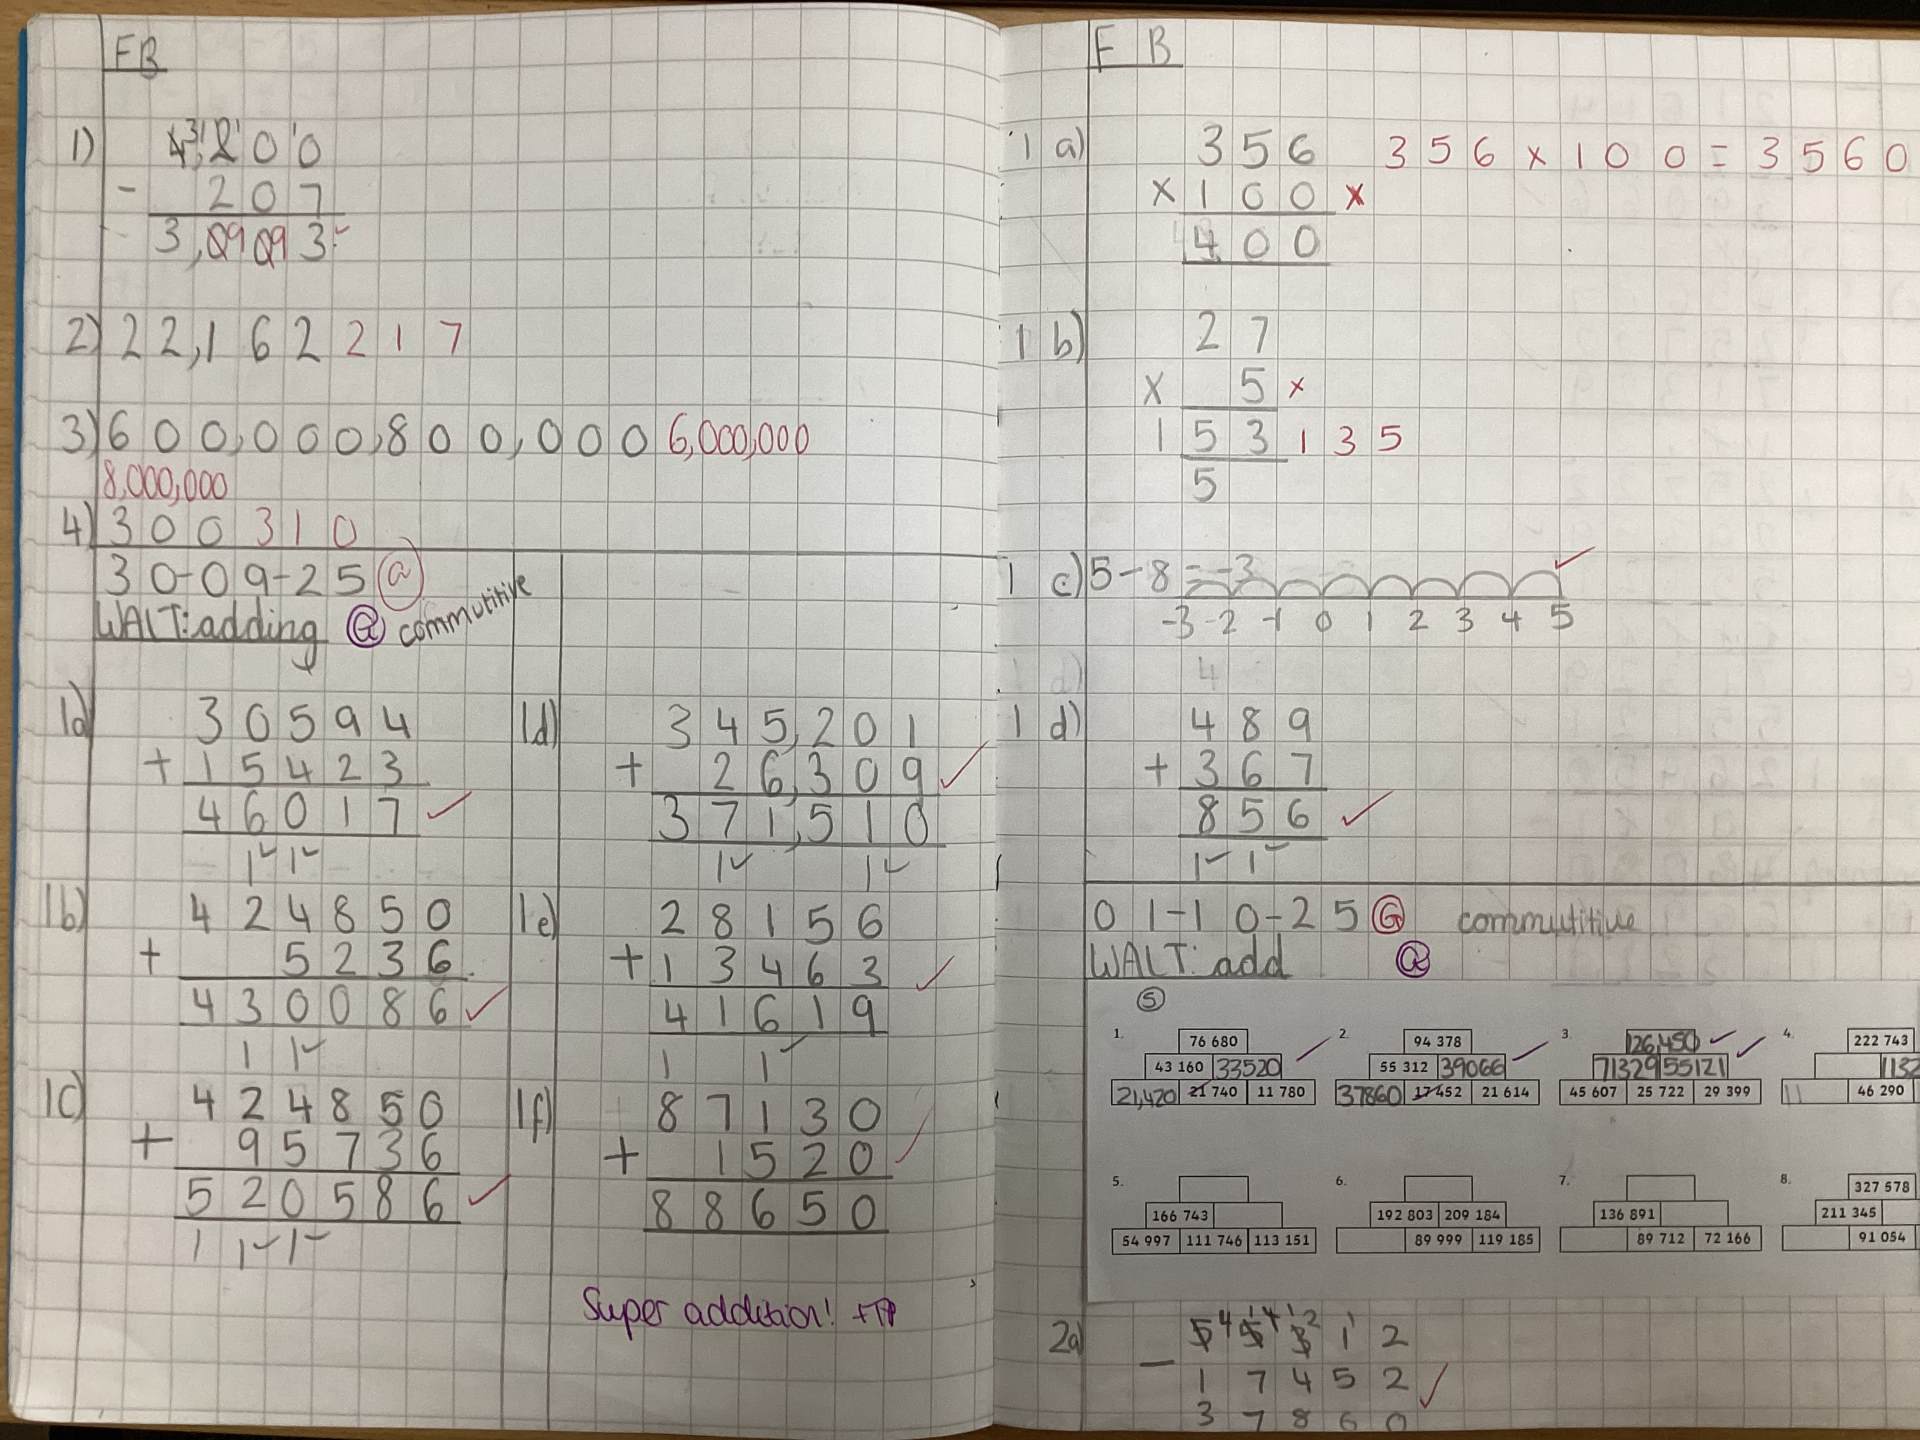 FB
1) 4,200
- 207
3,993
2) 22,162 217
3) 600,000,800,000 6,000,000
8,000,000
4) 300 310
30-09-25
WALT: adding commutitive
1a) 30594
+ 15423
46017
1 1
1b) 424850
+ 5236
430086
1 1
1c) 424850
+ 95736
520586
1 1 1
1d) 345,201
+ 26,309
371,510
1 1
1e) 28156
+ 13463
41619
1 1
1f) 87130
+ 1520
88650
Super addition!
FB
1a) 356 356 x 100 = 3560
x 100 x
400
1b) 27
x 5 x
153 135
5
1c) 5-8 = -3
-3 -2 -1 0 1 2 3 4 5
1d) 489
+ 367
856
1 1
01-10-25 G commutitive
WALT: add
5
1. 76 680
43 160 33520
21,420 21 740 11 780
2. 94 378
55 312 39066
37860 17 452 21 614
3. 126,450
71329 55121
45 607 25 722 29 399
4. 222 743
1132
11 46 290
5.
166 743
54 997 111 746 113 151
6.
192 803 209 184
89 999 119 185
7.
136 891
89 712 72 166
8. 327 578
211 345
91 054
2a) 55312
- 17452
37860